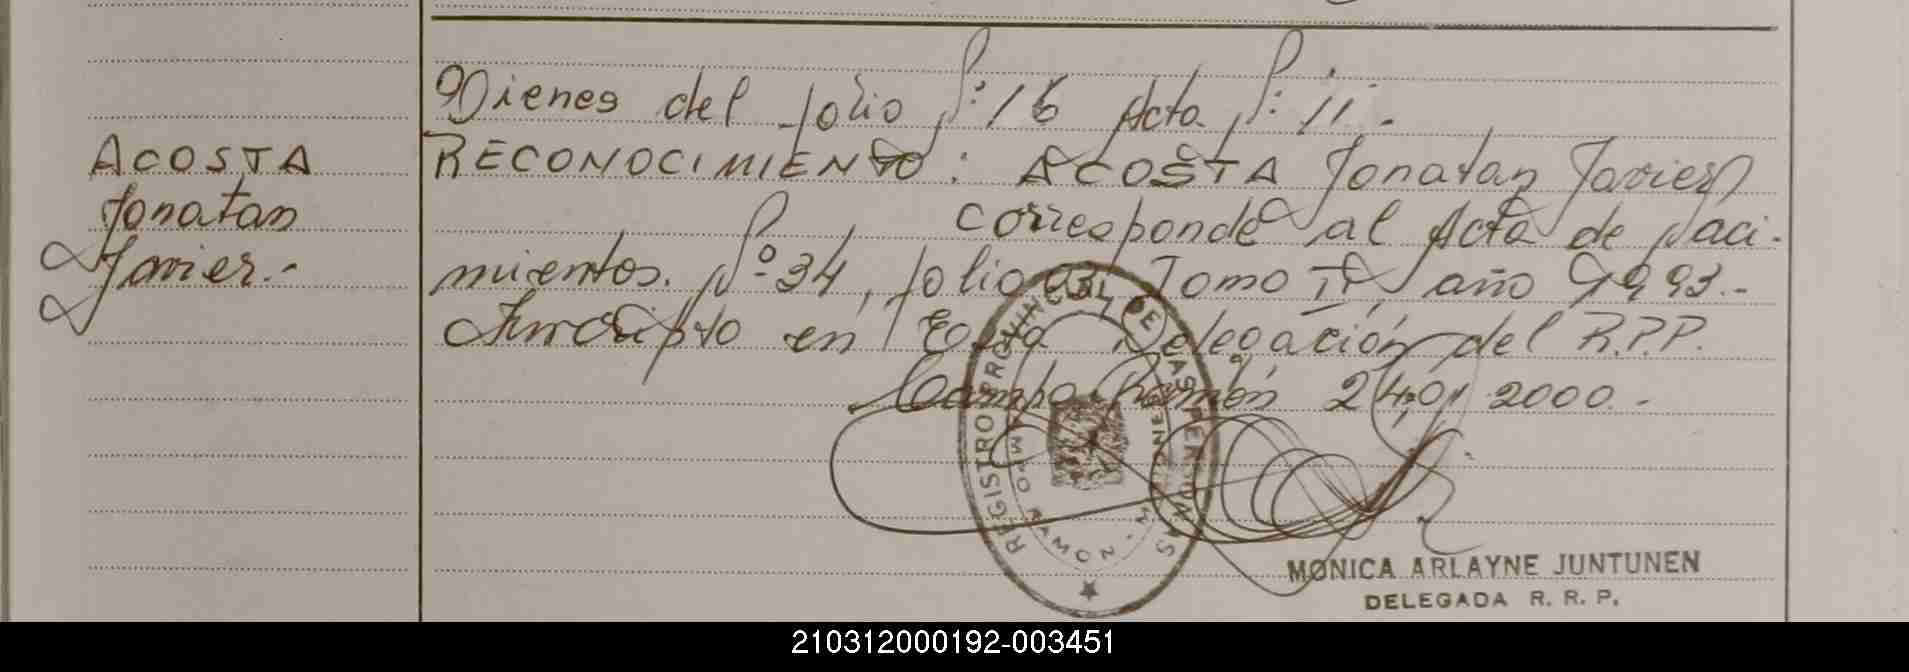 Vienes del folio Nº: 16 Acta Nº: 11.-
ACOSTA
Jonatan
Javier.-
RECONOCIMIENTO: ACOSTA Jonatan Javier
corresponde al Acta de Naci-
mientos. Nº 34, folio 034, Tomo Iº, año 1993.-
Inscripto en Esta Delegación del R.P.P.
Campo Ramón 24,01 2000.-
REGISTRO PROVINCIAL DE LAS PERSONAS
CAMPO RAMON - MISIONES
MONICA ARLAYNE JUNTUNEN
DELEGADA R. R. P.
210312000192-003451